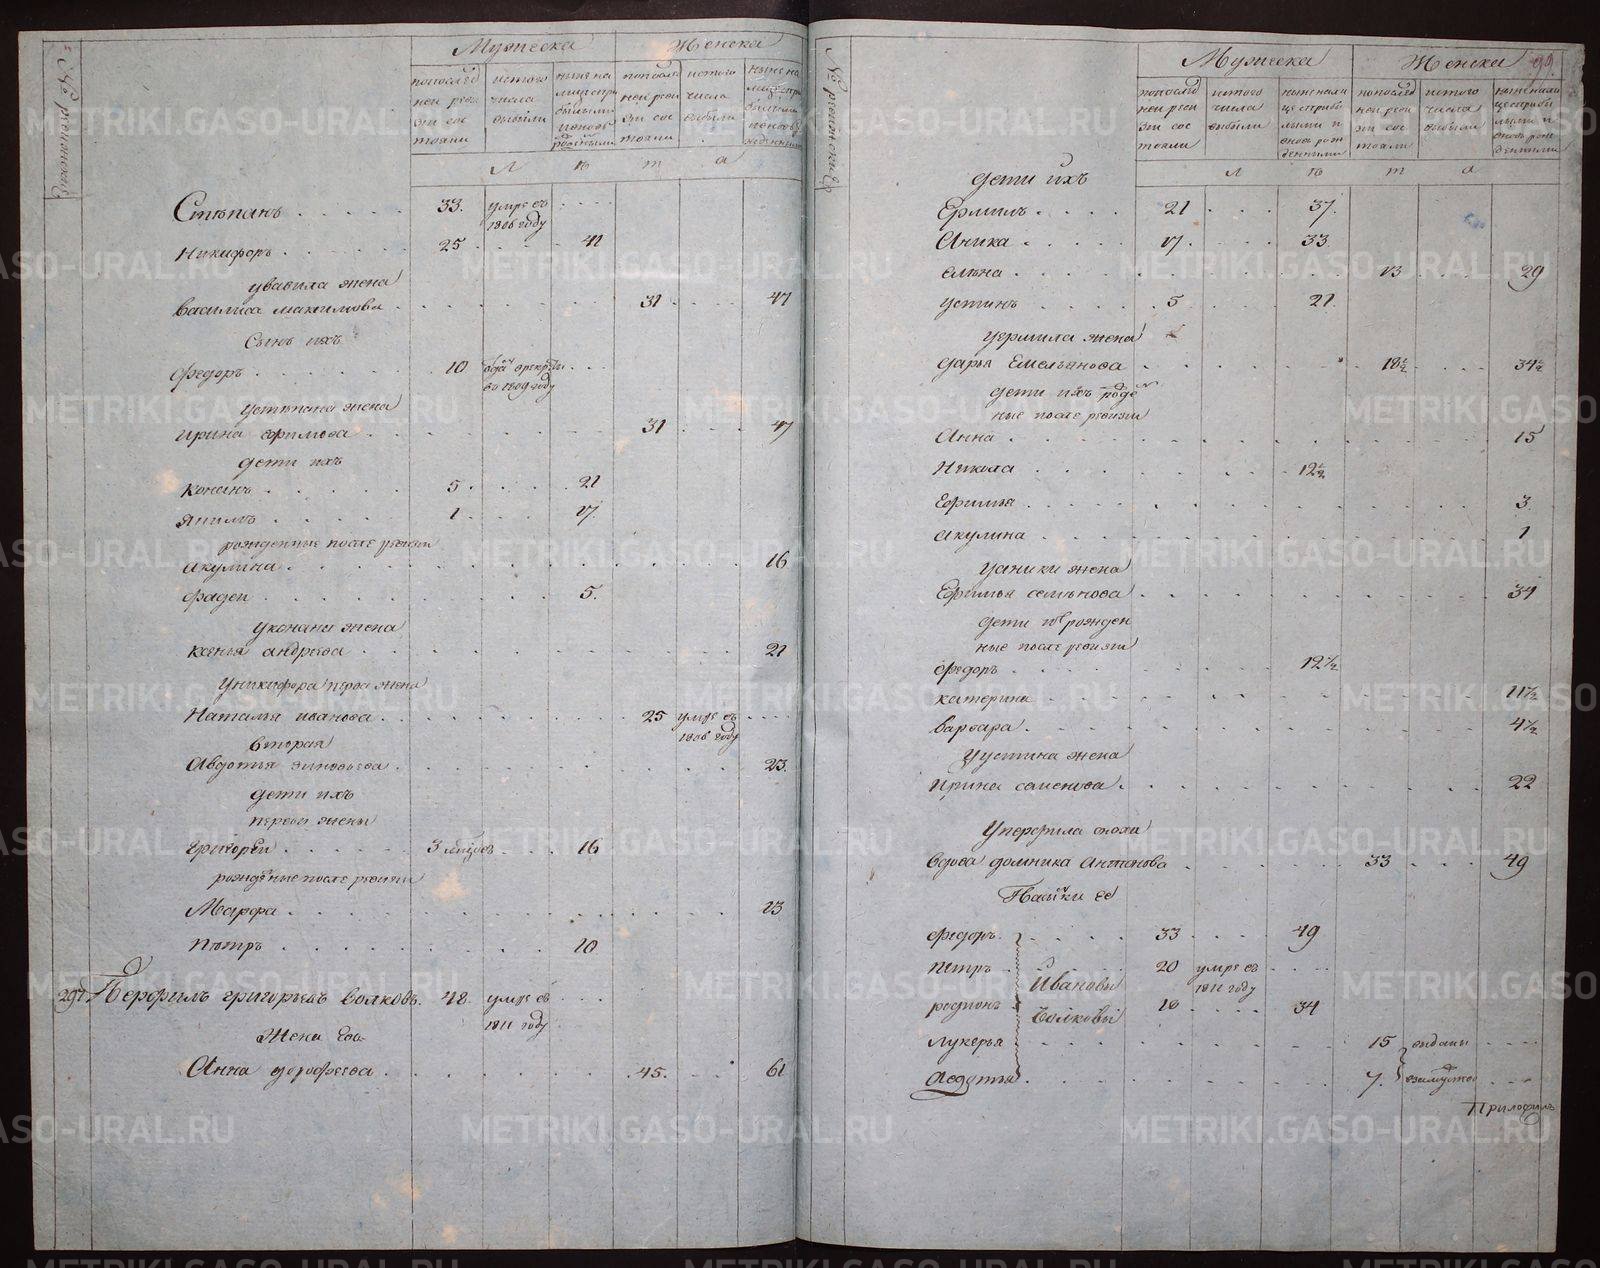 № ревижский
Мужеска Женска
по послед ней реви зии сос тояли
из того числа выбыли
ныне на лицо
по послед ней реви зии сос тояли
из того числа выбыли
ныне на лицо
Л ѣ т а
Степанъ 33. умре въ 1806 году
Никифоръ 25 41
у Вавила жена
Василиса Максимова 31 47
Сынъ ихъ
Федоръ 10 во 1809 году
у Степана жена
Ирина Ефимова 31 47
дети ихъ
Конанъ 5 21
Якимъ 1 17
рожденные после ревизи
Акулина 16
Фадеи 5.
у Конана жена
Ксенья Андреева 21
у Никифора перва жена
Наталья Иванова 25 умре въ 1806 году
вторая
Авдотья Зиновьева 23.
дети ихъ
первой жены
Григореи 3 16
рожденые после ревизи
Марфа 13
Петръ 10
297 Перфилъ Григорьевъ Волковъ 48 умре въ 1811 году
Жена Ево
Анна Дорофеева 45. 61
№ ревижский
Мужеска Женска 99.
по послед ней реви зии сос тояли
из того числа выбыли
ныне на лице с прибы лыми и вновь рож денными
по послед ней реви зии сос тояли
из того числа выбыли
ныне на лице с прибы лыми и вновь рож денными
Л ѣ т а
дети ихъ
Ермилъ 21 37.
Аника 17. 33
Елена 13 29
Устинъ 5 21.
у Ермила жена
Дарья Емельянова 18½ 34½
дети ихъ рожде ные после ревизи
Анна 15
Никола 12½
Ефимья 3
Акулина 1
у Аники жена
Ефимья Семенова 34
дети их рожден ные после ревизи
Федоръ 12½
Катерина 11½
Варвара 4½
у Устина жена
Ирина Семенова 22
у Перфила сноха
вдова Домника Антонова 33 49
Пасынки ее
Федоръ 33 49
Петръ Ивановы 20 умре въ 1811 году
Родионъ Волковы 18 34
Лукерья 15 выданы
Авдотья 7. взамужество
METRIKI.GASO-URAL.RU